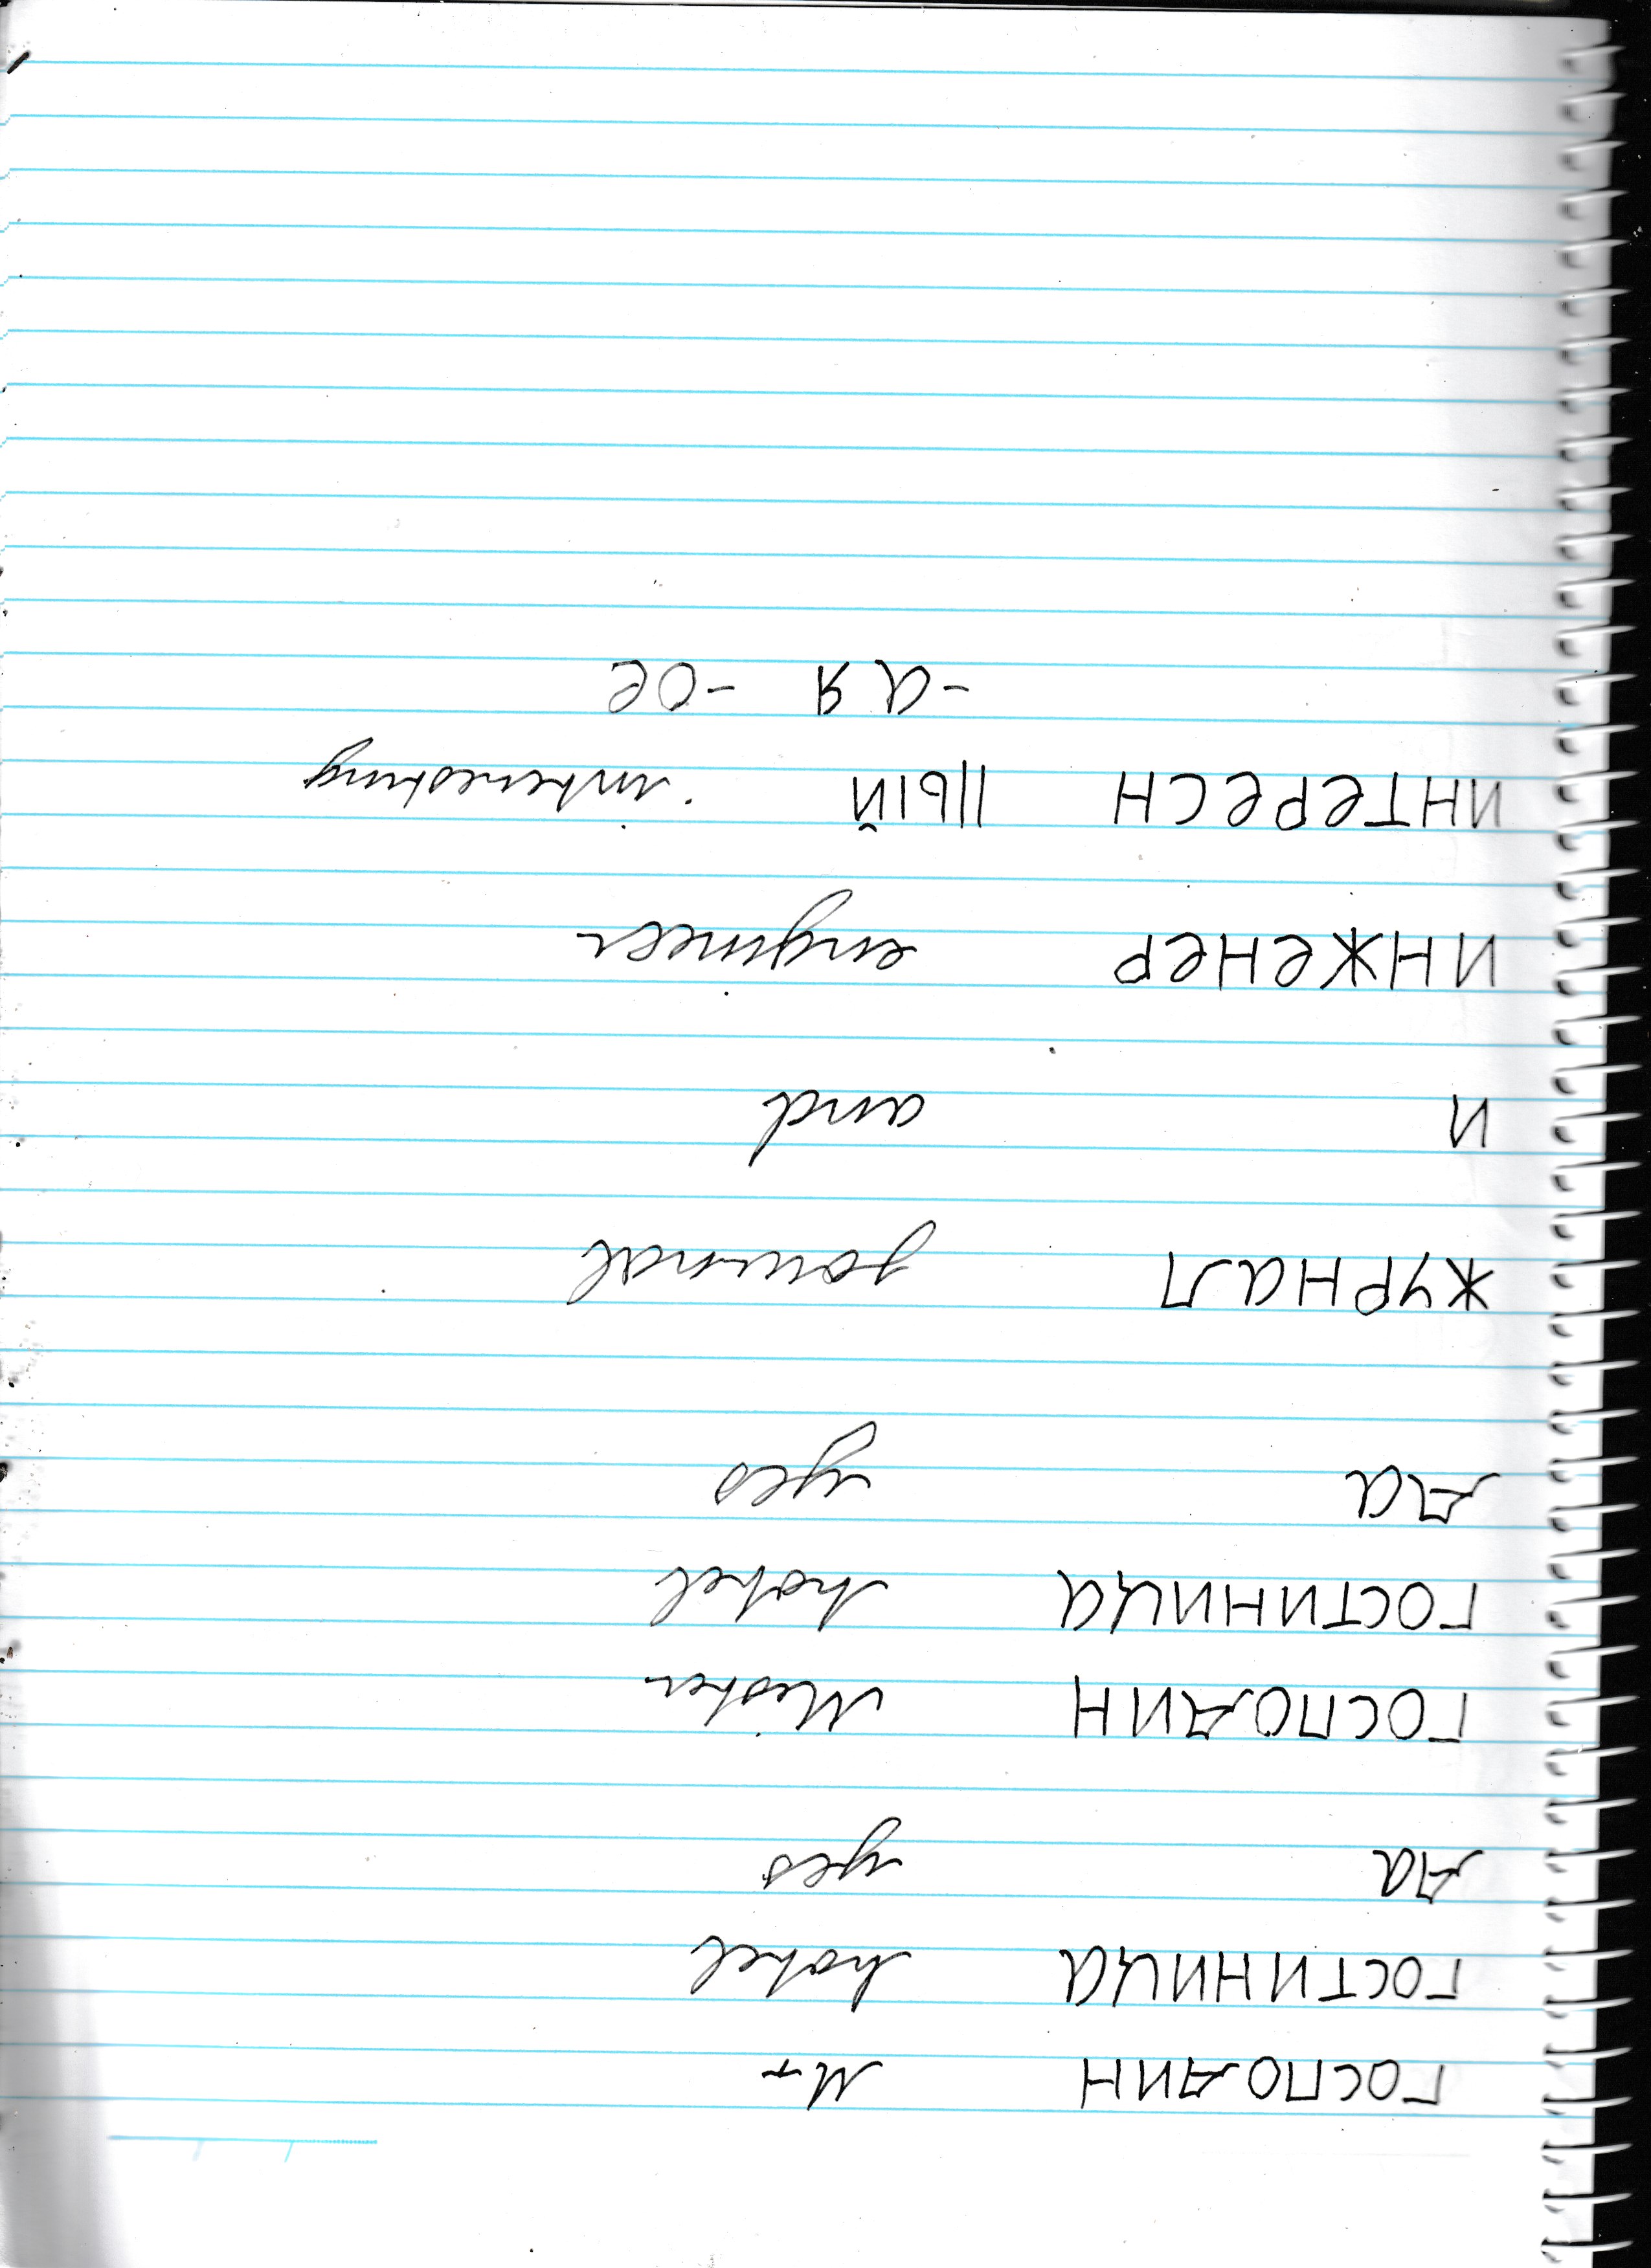 господин Mr
гостиница hotel
да yes
господин Mister
гостиница hotel
да yes
журнал journal
и and
инженер engineer
интересн ||ый interesting
-ая -ое